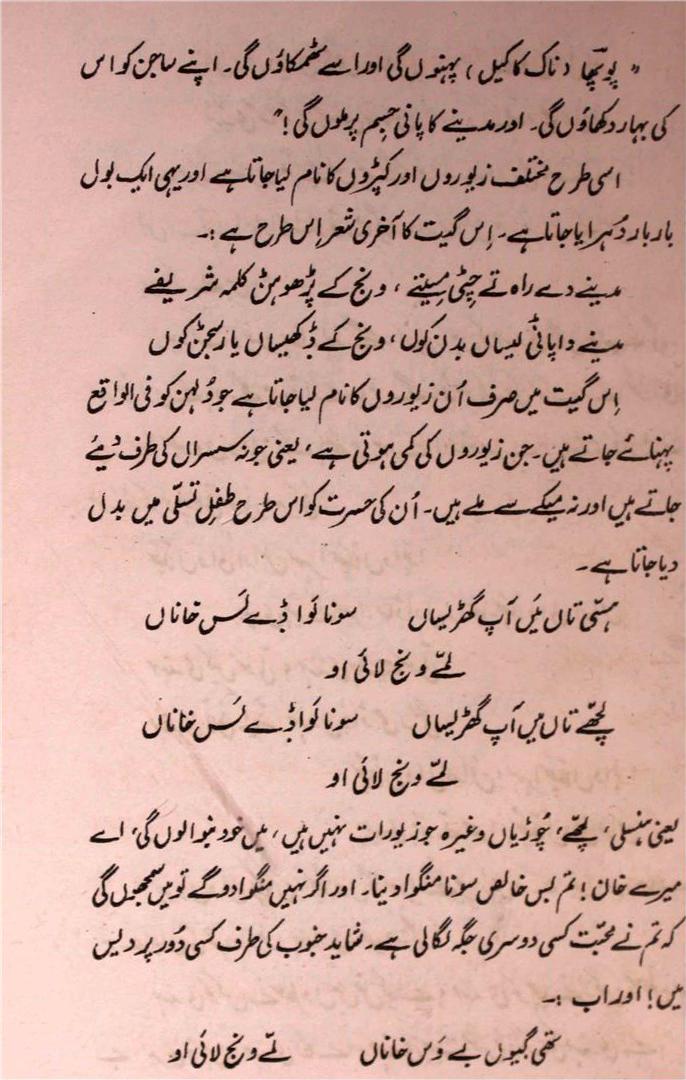 "پوپّھا (ناک کا کیل) پہنوں گی اور اسے ٹھمکاؤں گی۔ اپنے ساجن کو اس
کی بہار دکھاؤں گی۔ اور مدینے کا پانی جسم پر ملوں گی!"
اسی طرح مختلف زیوروں اور کپڑوں کا نام لیا جاتا ہے اور یہی ایک بول
بار بار دُہرایا جاتا ہے۔ اِس گیت کا آخری شعر اِس طرح ہے :۔
مدینے دے راہ تے چِٹی مسیتے ، ونج کے پڑھوہݨ کلمہ شریفے
مدینے دا پاݨی لیساں بدن کولا، ونج کے ڈکھیساں یار سجݨ کوں
اِس گیت میں صرف اُن زیوروں کا نام لیا جاتا ہے جو دُلہن کو فی الواقع
پہنائے جاتے ہیں۔ جن زیوروں کی کمی ہوتی ہے، یعنی جو نہ سسرال کی طرف دیئے
جاتے ہیں اور نہ میکے سے ملے ہیں۔ اُن کی حسرت کو اس طرح طفلِ تسلّی میں بدل
دیا جاتا ہے۔
ہسّی تاں مَیں آپ گھڑیساں سونا نَوا ڈے لَس خاناں
لمّے ونج لائی او
لچھّے تاں میں آپ گھڑیساں سونا نَوا ڈے لَس خاناں
لمّے ونج لائی او
یعنی ہنسلی، لچھّے، چُوڑیاں وغیرہ جو زیورات نہیں ہیں، میں خود بنوا لوں گی، اے
میرے خان! تم بس خالص سونا منگوا دینا۔ اور اگر نہیں منگوا دو گے تو میں سمجھوں گی
کہ تم نے محبّت کسی دوسری جگہ لگا لی ہے۔ شاید جنوب کی طرف کسی دُور پردیس
میں! اور اب :۔
تھی گیوں بے وَس خاناں لمّے ونج لائی او